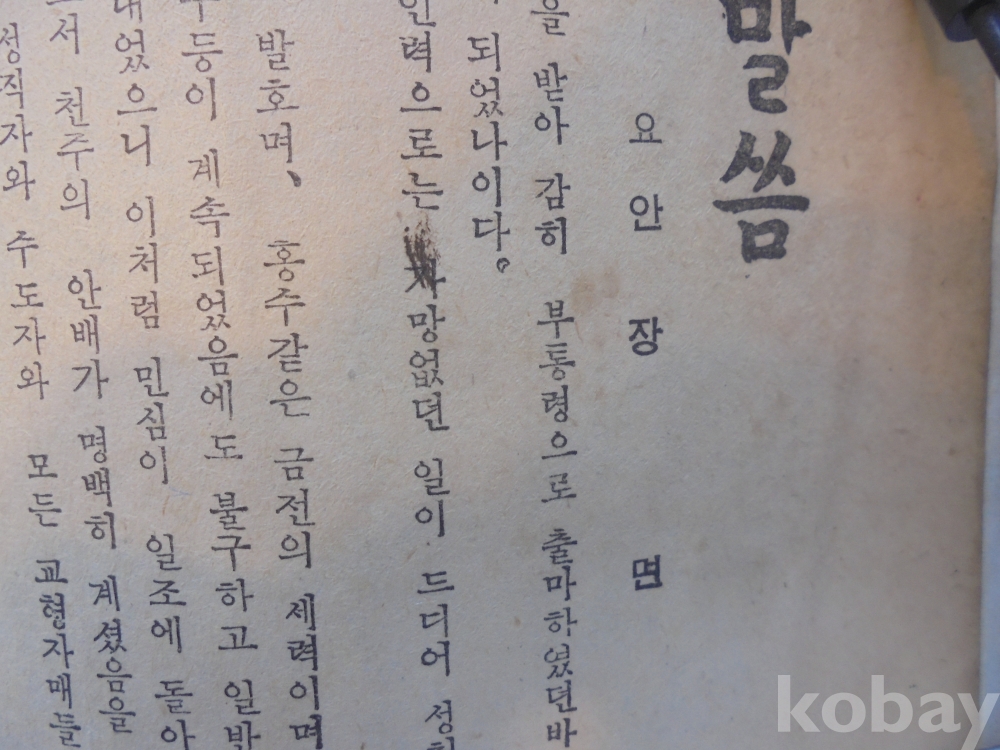 말씀
요안 장 면
을 받아 감히 부통령으로 출마하였던바
되었나이다。
인력으로는 망없던 일이 드디어 성
발호며、 홍수같은 금전의 세력이며
두등이 계속되었음에도 불구하고 일반
내었으니 이처럼 민심이 일조에 돌아
서 천주의 안배가 명백히 계셨음을
성직자와 수도자와 모든 교형자매들
kobay